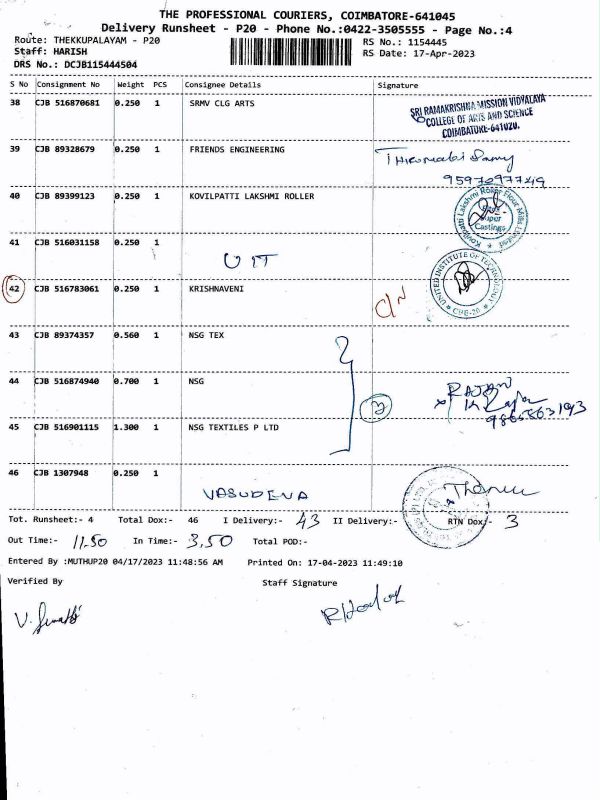 THE PROFESSIONAL COURIERS, COIMBATORE-641045
Delivery Runsheet - P20 - Phone No.:0422-3505555 - Page No.:4
Route: THEKKUPALAYAM - P20
RS No.: 1154445
Staff: HARISH
RS Date: 17-Apr-2023
DRS No.: DCJB115444504
S No Consignment No Weight PCS Consignee Details Signature
38 CJB 516870681 0.250 1 SRMV CLG ARTS
SRI RAMAKRISHNA MISSION VIDYALAYA
COLLEGE OF ARTS AND SCIENCE
COIMBATORE-641020.
39 CJB 89328679 0.250 1 FRIENDS ENGINEERING
40 CJB 89399123 0.250 1 KOVILPATTI LAKSHMI ROLLER
Kovilpatti Lakshmi Roller Flour Mills Limited
Super
Castings
41 CJB 516031158 0.250 1
UIT
UNITED INSTITUTE OF TECHNOLOGY
CBE-20
42 CJB 516783061 0.250 1 KRISHNAVENI
C/N
43 CJB 89374357 0.560 1 NSG TEX
44 CJB 516874940 0.700 1 NSG
RAJAN
45 CJB 516901115 1.300 1 NSG TEXTILES P LTD
46 CJB 1307948 0.250 1
VASUDEVA
Tot. Runsheet:- 4 Total Dox:- 46 I Delivery:- 43 II Delivery:- RTN Dox:- 3
Out Time:- 11.50 In Time:- 3.50 Total POD:-
Entered By :MUTHUP20 04/17/2023 11:48:56 AM Printed On: 17-04-2023 11:49:10
Verified By Staff Signature